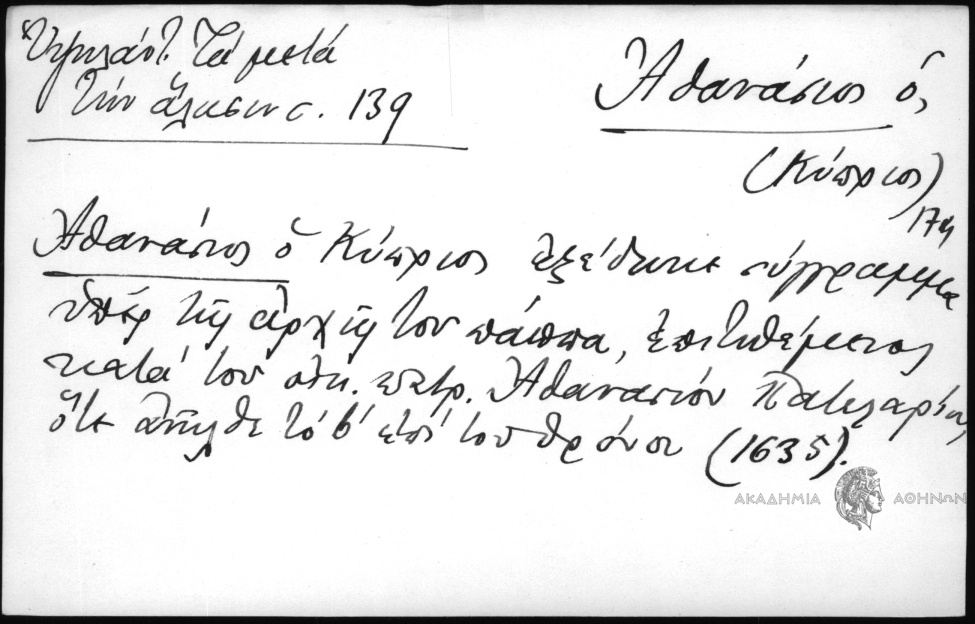 Ὑψηλάντ. Τά μετά
τήν ἅλωσιν σ. 139
Ἀθανάσιος ὁ,
(Κύπριος)
17ος
Ἀθανάσιος ὁ Κύπριος ἐξέδωκε σύγγραμμα
ὑπέρ τῆς ἀρχῆς τοῦ πάππα, ἐπιτιθέμενος
κατά τοῦ οἰκ. πατρ. Ἀθανασίου Πατελάρου,
ὅτε ἀπῆλθε τό β' ἐπί τοῦ θρόνου (1635).
ΑΚΑΔΗΜΙΑ ΑΘΗΝΩΝ